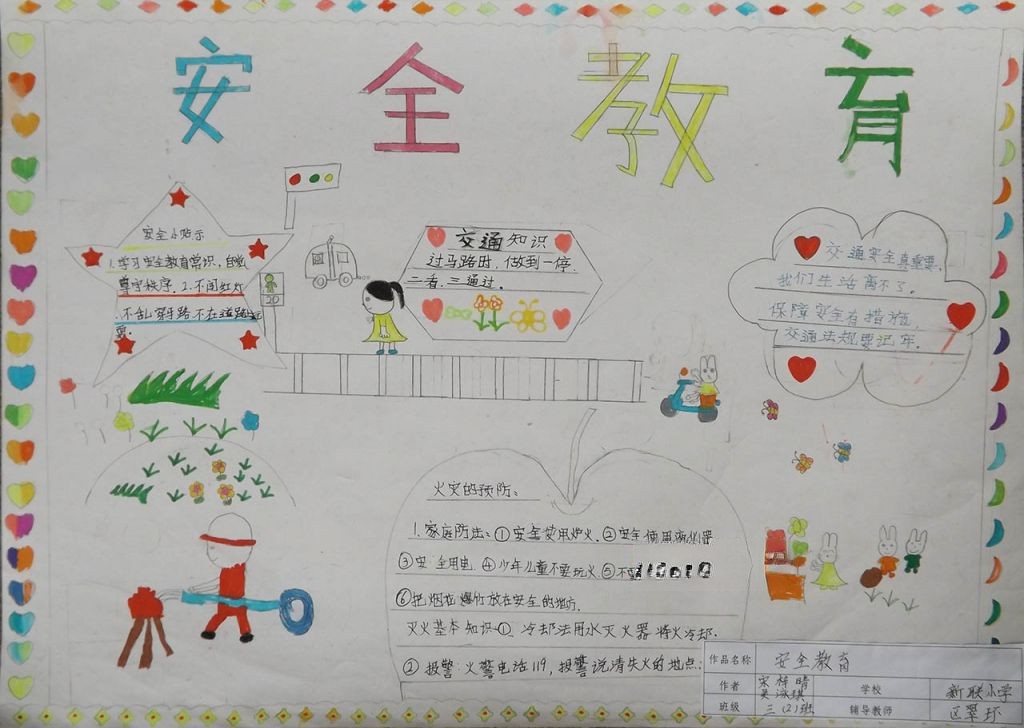 安全教育
安全小贴示
1.学习安全教育常识,自觉
遵守秩序.2.不闯红灯
.不乱穿马路不在道路
20
交通知识
过马路时.做到一停.
二看.三通过.
交通安全真重要.
我们生活离不了.
保障安全有措施,
交通法规要记牢.
火灾的预防:
1.家庭防法:①安全使用炉火.②安全使用
③安全用电.④少年儿童不要玩火.⑤不
⑥把烟花爆竹放在安全的地方.
灭火基本知识①.冷却法用水灭火器将火冷却.
②报警:火警电话119,报警说清失火的地点.
作品名称 安全教育
作者 宋梓晴
班级 三(2)班
学校 新联小学
辅导教师